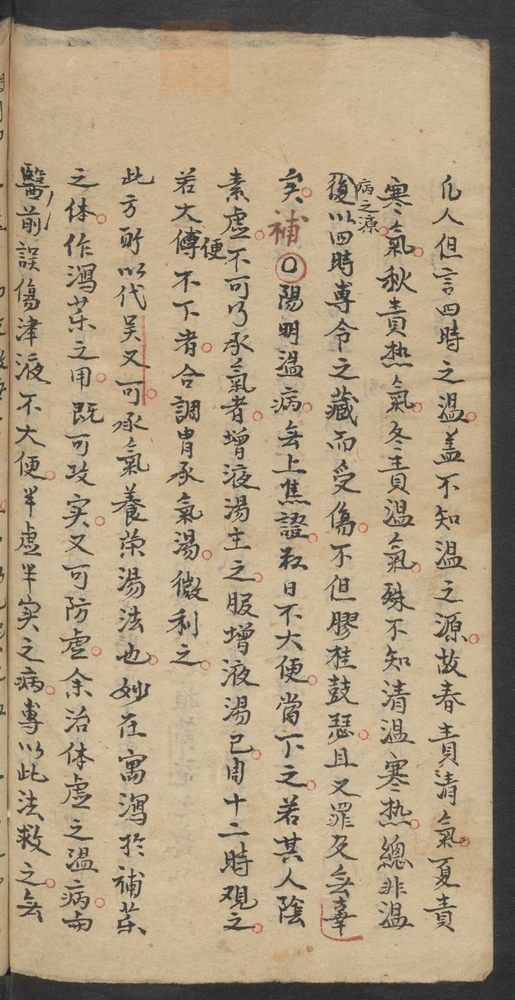 凡人但言四時之溫盖不知溫之源故春責清氣夏責
寒氣秋責热氣冬責溫氣殊不知清溫寒热總非溫
病之源
復以四時專令之藏而受傷不但膠柱鼓瑟且又罪及無辜
矣補〇陽明溫病無上焦證数日不大便當下之若其人陰
素虛不可行承氣者增液湯主之服增液湯已周十二時观之
若大便不下者合調胃承氣湯微利之
此方所以代吴又可承氣養荣湯法也妙在寓瀉扵補薬
之体作瀉薬之用既可攻实又可防虛余治体虛之溫病與
醫前誤傷津液不大便半虛半实之病專以此法救之無